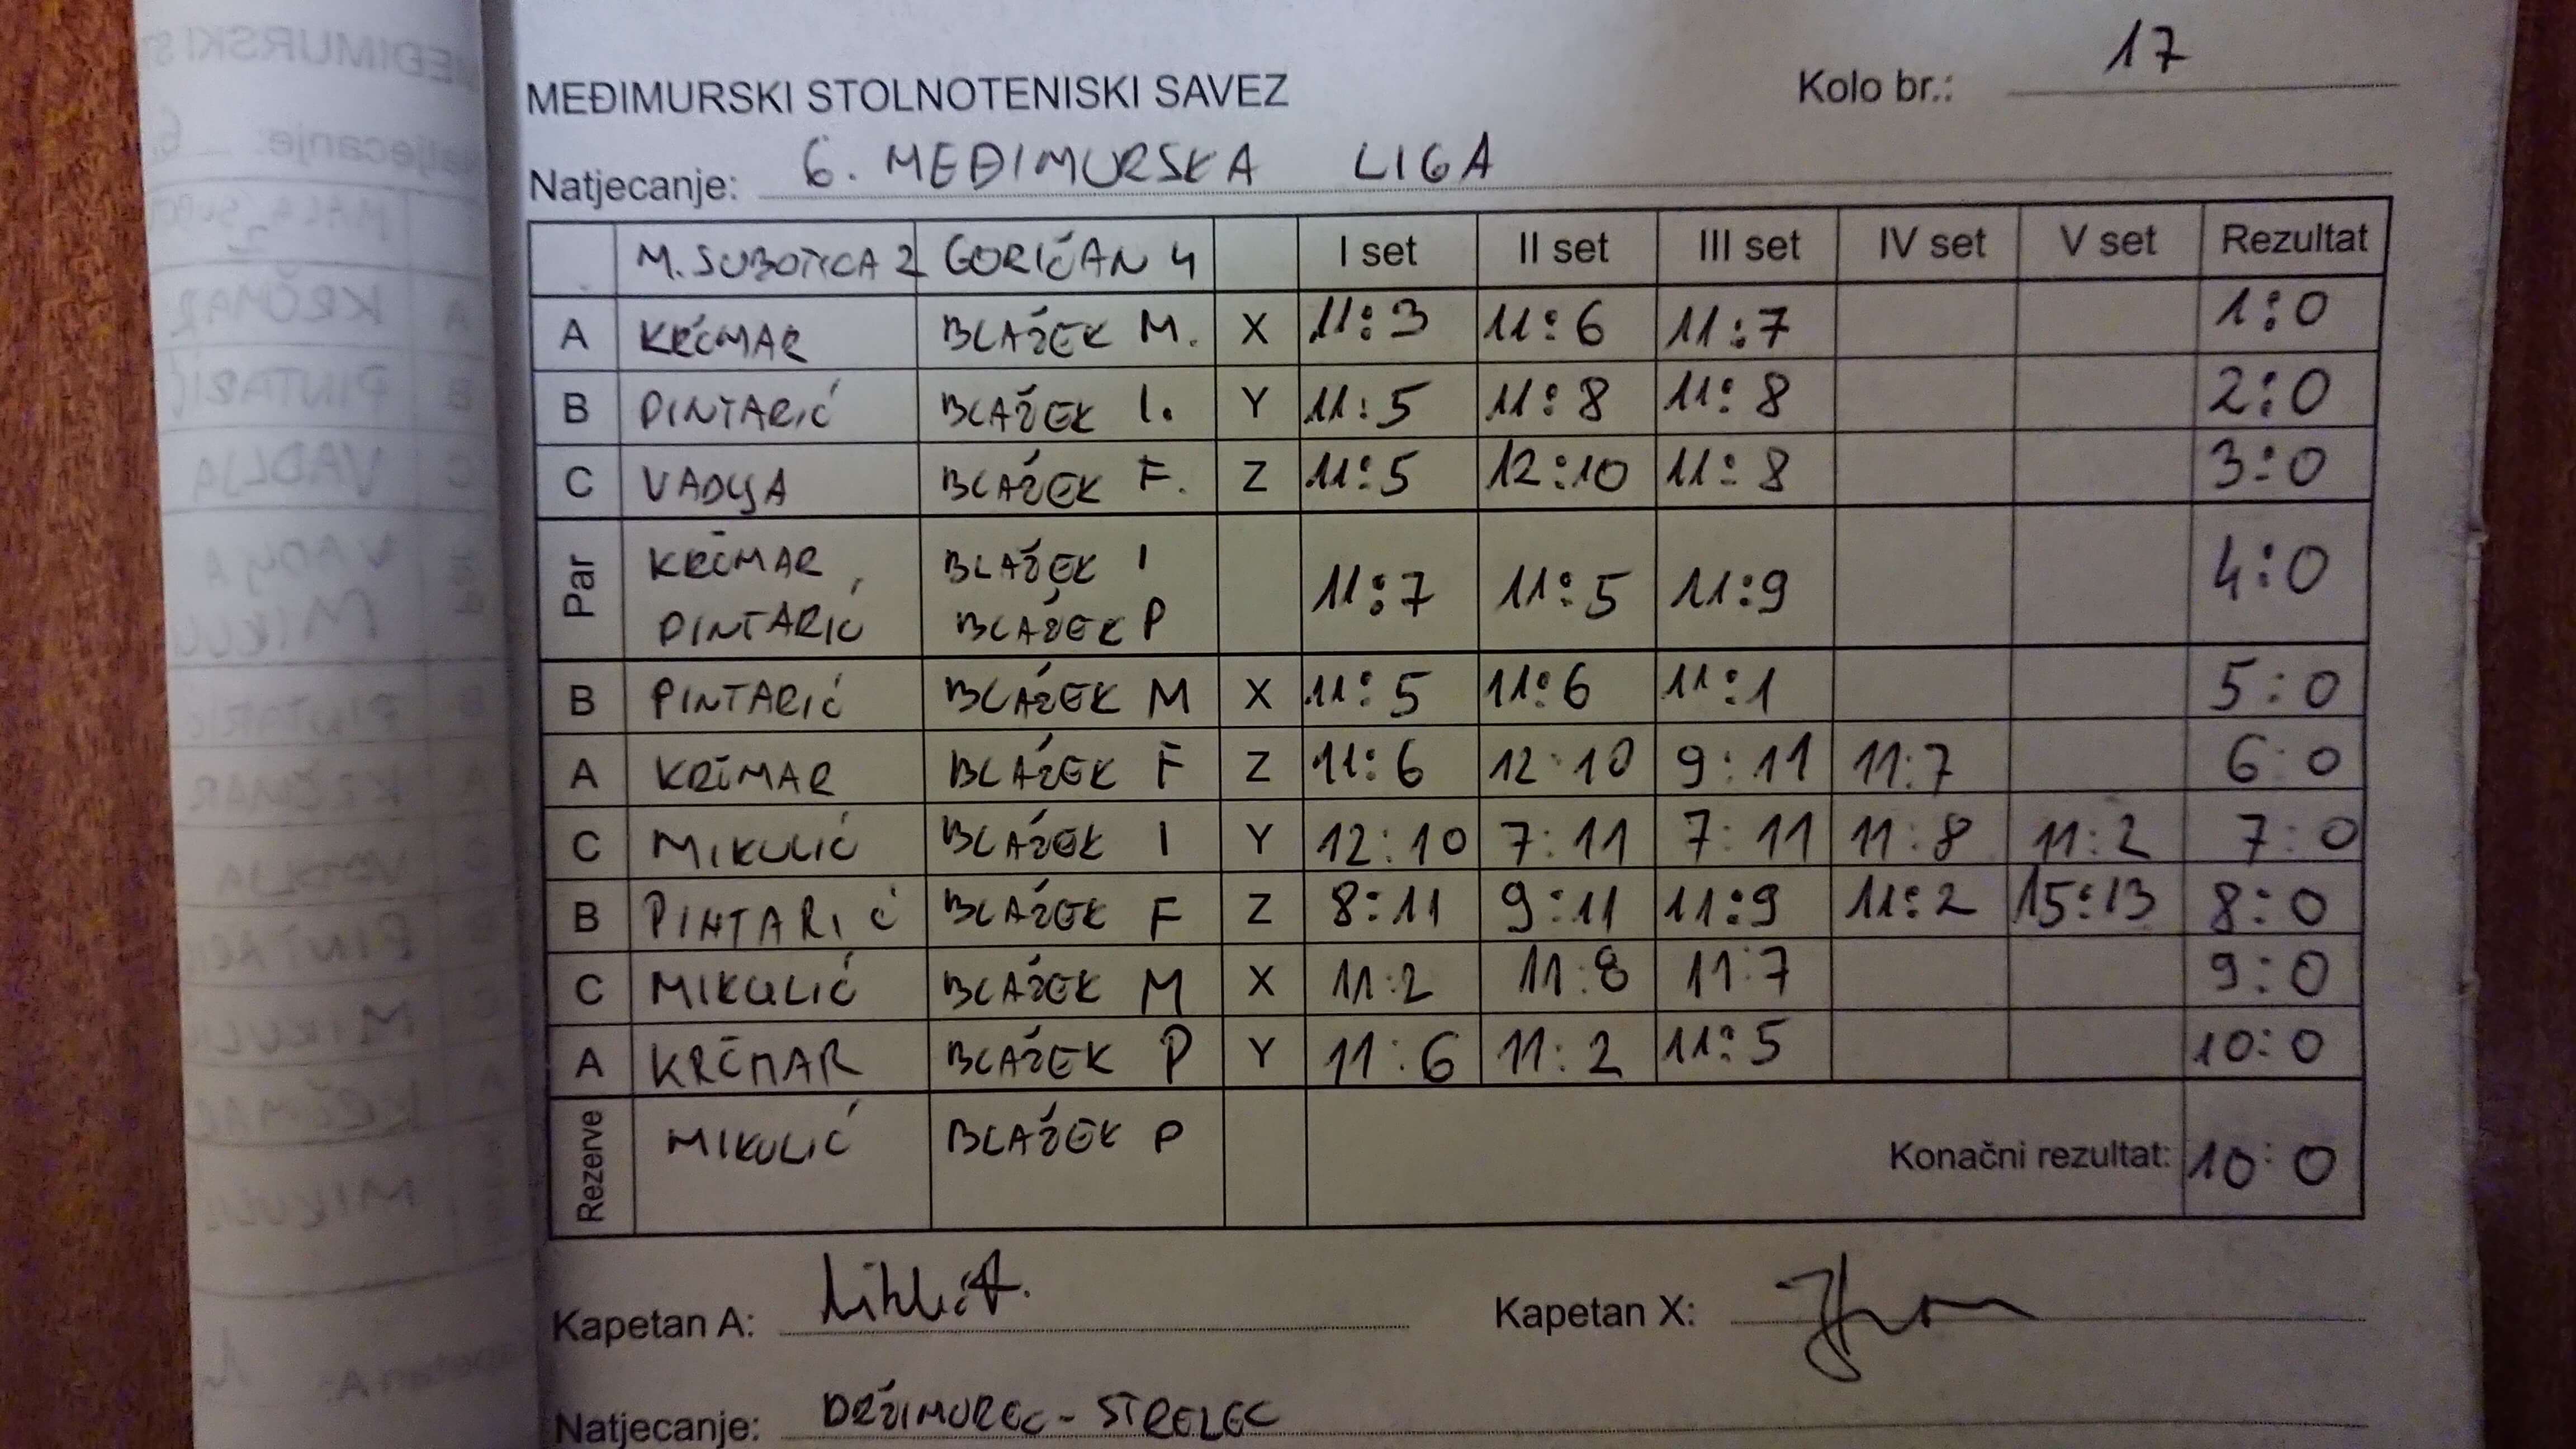 MEĐIMURSKI STOLNOTENISKI SAVEZ
Kolo br.: 17
Natjecanje: 6. MEĐIMURSKA LIGA
M. SUBOTICA 2 GORIČAN 4 I set II set III set IV set V set Rezultat
A KRČMAR BLAŽEK M. X 11:3 11:6 11:7 1:0
B PINTARIĆ BLAŽEK I. Y 11:5 11:8 11:8 2:0
C VADLJA BLAŽEK F. Z 11:5 12:10 11:8 3:0
Par KRČMAR, PINTARIĆ BLAŽEK I BLAŽEK P 11:7 11:5 11:9 4:0
B PINTARIĆ BLAŽEK M X 11:5 11:6 11:1 5:0
A KRČMAR BLAŽEK F Z 11:6 12:10 9:11 11:7 6:0
C MIKULIĆ BLAŽEK I Y 12:10 7:11 7:11 11:8 11:2 7:0
B PINTARIĆ BLAŽEK F Z 8:11 9:11 11:9 11:2 15:13 8:0
C MIKULIĆ BLAŽEK M X 11:2 11:8 11:7 9:0
A KRČMAR BLAŽEK P Y 11:6 11:2 11:5 10:0
Rezerve MIKULIĆ BLAŽEK P Konačni rezultat: 10:0
Kapetan A: Kapetan X:
Natjecanje: DRŽIMUREC - STRELEC